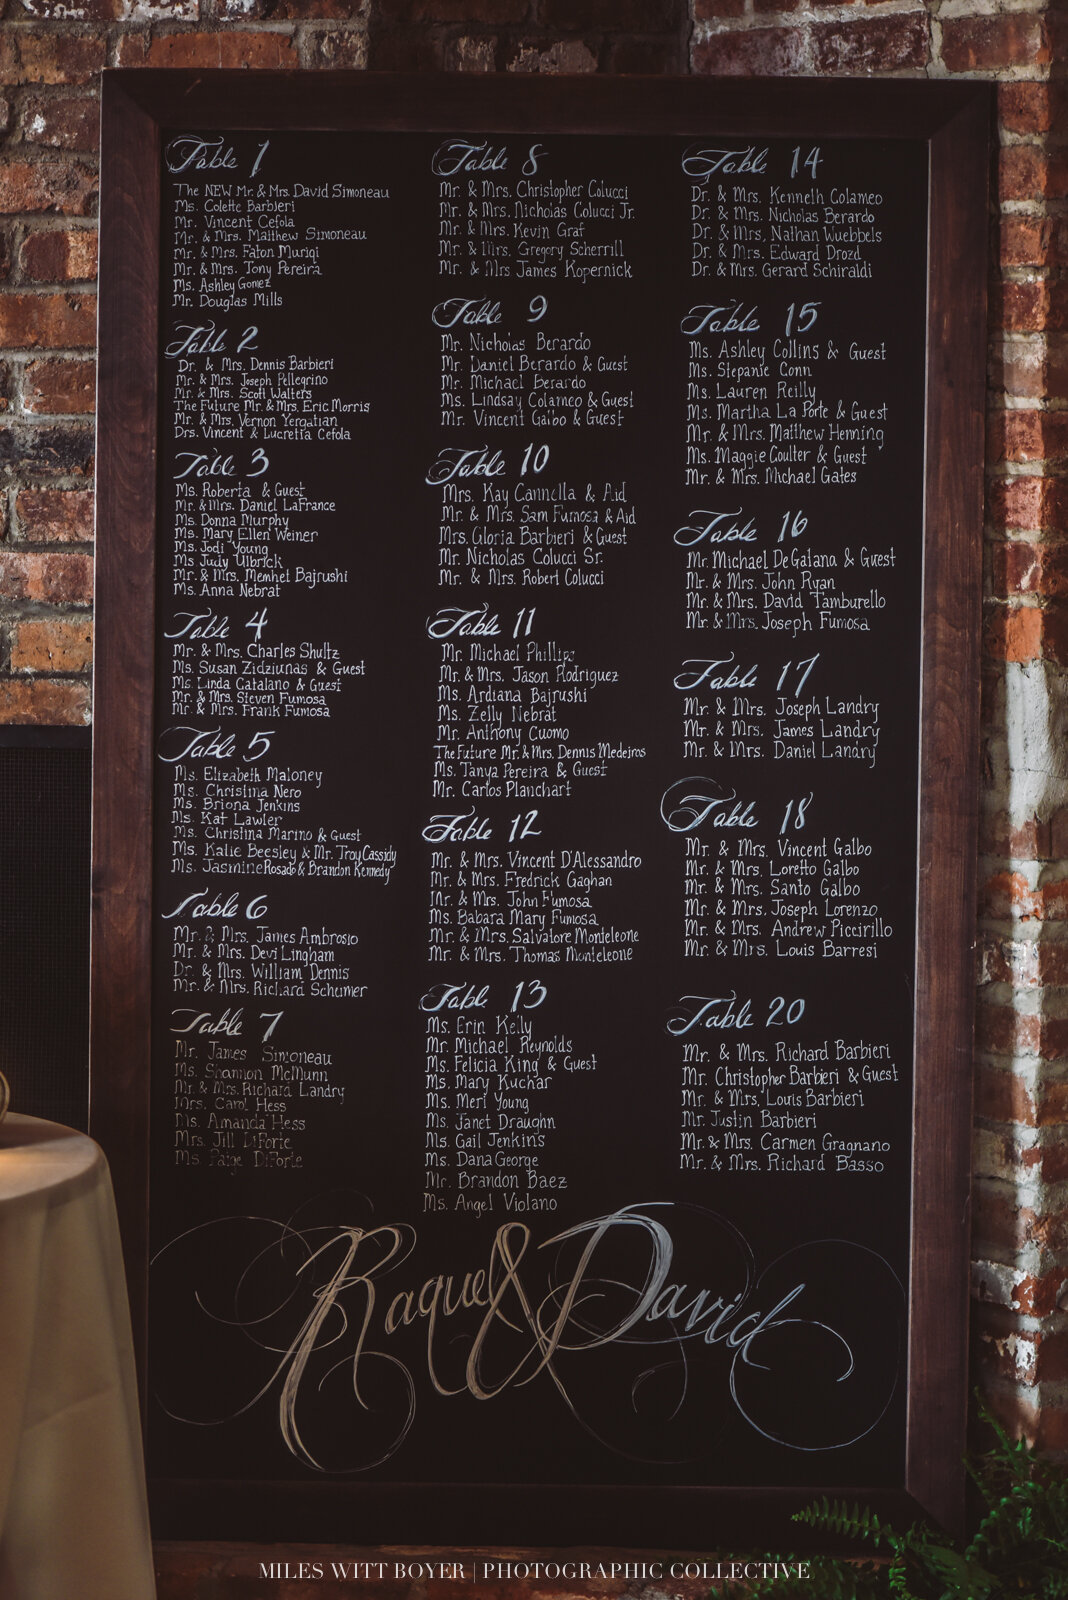 Table 1
The NEW Mr. & Mrs. David Simoneau
Ms. Colette Barbieri
Mr. Vincent Cefola
Mr. & Mrs. Matthew Simoneau
Mr. & Mrs. Faton Muriqi
Mr. & Mrs. Tony Pereira
Ms. Ashley Gomez
Mr. Douglas Mills
Table 2
Dr. & Mrs. Dennis Barbieri
Mr. & Mrs. Joseph Pellegrino
Mr. & Mrs. Scott Walters
The Future Mr. & Mrs. Eric Morris
Mr. & Mrs. Vernon Yergatian
Drs. Vincent & Lucretta Cefola
Table 3
Ms. Roberta & Guest
Mr. & Mrs. Daniel LaFrance
Ms. Donna Murphy
Ms. Mary Ellen Weiner
Ms. Jodi Young
Ms Judy Ulbrick
Mr. & Mrs. Memhet Bajrushi
Ms. Anna Nebrat
Table 4
Mr. & Mrs. Charles Shultz
Ms. Susan Zidziunas & Guest
Ms. Linda Catalano & Guest
Mr. & Mrs. Steven Fumosa
Mr. & Mrs. Frank Fumosa
Table 5
Ms. Elizabeth Maloney
Ms. Christina Nero
Ms. Briona Jenkins
Ms. Kat Lawler
Ms. Christina Marino & Guest
Ms. Katie Beesley & Mr. Troy Cassidy
Ms. Jasmine Rosado & Brandon Kennedy
Table 6
Mr. & Mrs. James Ambrosio
Mr. & Mrs. Devi Lingham
Dr. & Mrs. William Dennis
Mr. & Mrs. Richard Schumer
Table 7
Mr. James Simoneau
Ms. Shannon McMunn
Mr. & Mrs. Richard Landry
Mrs. Carol Hess
Ms. Amanda Hess
Mrs. Jill DiForte
Ms. Paige DiForte
Table 8
Mr. & Mrs. Christopher Colucci
Mr. & Mrs. Nicholas Colucci Jr.
Mr. & Mrs. Kevin Graf
Mr. & Mrs. Gregory Scherrill
Mr. & Mrs James Kopernick
Table 9
Mr. Nicholas Berardo
Mr. Daniel Berardo & Guest
Mr. Michael Berardo
Ms. Lindsay Colameo & Guest
Mr. Vincent Galbo & Guest
Table 10
Mrs. Kay Cannella & Aid
Mr. & Mrs. Sam Fumosa & Aid
Mrs. Gloria Barbieri & Guest
Mr. Nicholas Colucci Sr.
Mr. & Mrs. Robert Colucci
Table 11
Mr. Michael Phillips
Mr. & Mrs. Jason Rodriguez
Ms. Ardiana Bajrushi
Ms. Zelly Nebrat
Mr. Anthony Cuomo
The Future Mr. & Mrs. Dennis Medeiros
Ms. Tanya Pereira & Guest
Mr. Carlos Planchart
Table 12
Mr. & Mrs. Vincent D'Alessandro
Mr. & Mrs. Fredrick Gaghan
Mr. & Mrs. John Fumosa
Ms. Babara Mary Fumosa
Mr. & Mrs. Salvatore Monteleone
Mr. & Mrs. Thomas Monteleone
Table 13
Ms. Erin Kelly
Mr. Michael Reynolds
Ms. Felicia King & Guest
Ms. Mary Kuchar
Ms. Meri Young
Ms. Janet Draughn
Ms. Gail Jenkins
Ms. Dana George
Mr. Brandon Baez
Ms. Angel Violano
Table 14
Dr. & Mrs. Kenneth Colameo
Dr. & Mrs. Nicholas Berardo
Dr. & Mrs. Nathan Wuebbels
Dr. & Mrs. Edward Drozd
Dr. & Mrs. Gerard Schiraldi
Table 15
Ms. Ashley Collins & Guest
Ms. Stepanie Conn
Ms. Lauren Reilly
Ms. Martha La Porte & Guest
Mr. & Mrs. Matthew Henning
Ms. Maggie Coulter & Guest
Mr. & Mrs. Michael Gates
Table 16
Mr. Michael DeGatana & Guest
Mr. & Mrs. John Ryan
Mr. & Mrs. David Tamburello
Mr. & Mrs. Joseph Fumosa
Table 17
Mr. & Mrs. Joseph Landry
Mr. & Mrs. James Landry
Mr. & Mrs. Daniel Landry
Table 18
Mr. & Mrs. Vincent Galbo
Mr. & Mrs. Loretto Galbo
Mr. & Mrs. Santo Galbo
Mr. & Mrs. Joseph Lorenzo
Mr. & Mrs. Andrew Piccirillo
Mr. & Mrs. Louis Barresi
Table 20
Mr. & Mrs. Richard Barbieri
Mr. Christopher Barbieri & Guest
Mr. & Mrs. Louis Barbieri
Mr. Justin Barbieri
Mr. & Mrs. Carmen Gragnano
Mr. & Mrs. Richard Basso
Raquel & David
MILES WITT BOYER | PHOTOGRAPHIC COLLECTIVE